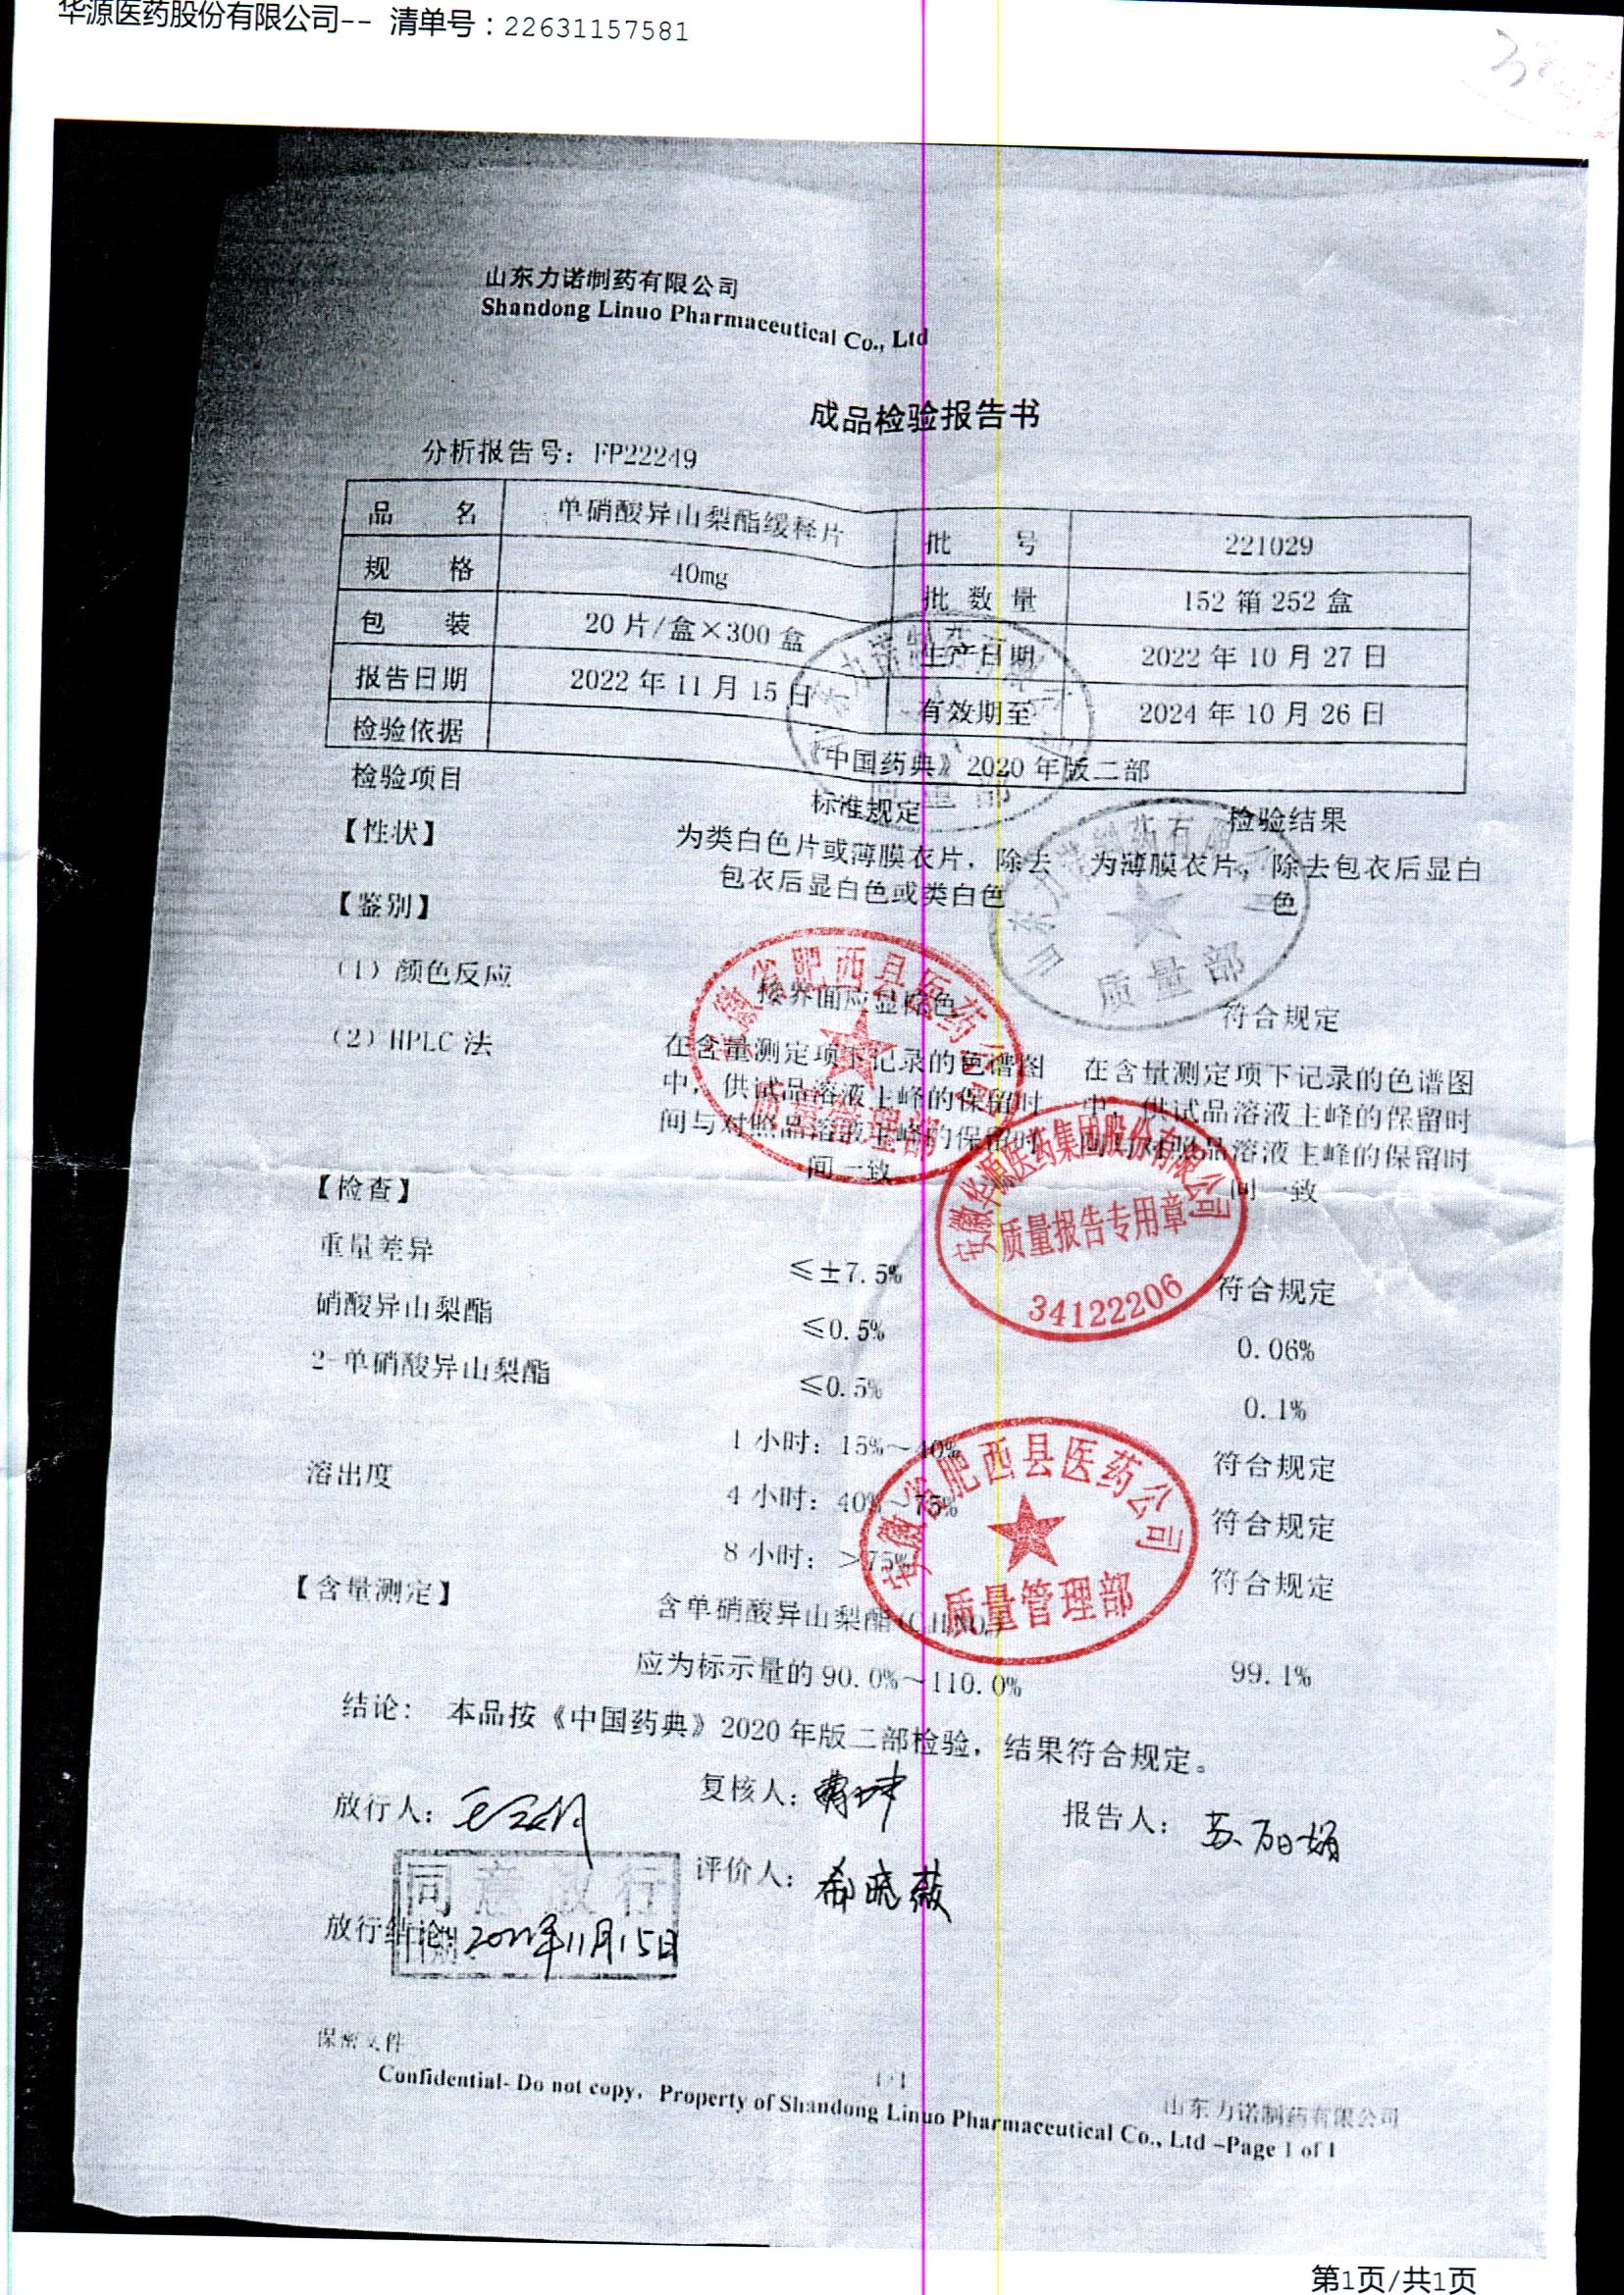 华源医药股份有限公司-- 清单号：22631157581
山东力诺制药有限公司
Shandong Linuo Pharmaceutical Co., Ltd
成品检验报告书
分析报告号：FP22249
品 名 单硝酸异山梨酯缓释片 批 号 221029
规 格 40mg 批 数 量 152 箱 252 盒
包 装 20 片/盒×300 盒 生产日期 2022 年 10 月 27 日
报告日期 2022 年 11 月 15 日 有效期至 2024 年 10 月 26 日
检验依据 《中国药典》2020 年版二部
检验项目 标准规定 检验结果
【性状】 为类白色片或薄膜衣片，除去 为薄膜衣片，除去包衣后显白
包衣后显白色或类白色 色
【鉴别】
（1）颜色反应 接界面应显棕色 符合规定
（2）HPLC 法 在含量测定项下记录的色谱图 在含量测定项下记录的色谱图
中，供试品溶液主峰的保留时 中，供试品溶液主峰的保留时
间与对照品溶液主峰的保留时 间与对照品溶液主峰的保留时
间一致 间一致
【检查】
重量差异 ≤±7.5% 符合规定
硝酸异山梨酯 ≤0.5% 0.06%
2-单硝酸异山梨酯 ≤0.5% 0.1%
溶出度 1 小时：15%～40% 符合规定
4 小时：40%～75% 符合规定
8 小时：＞75% 符合规定
【含量测定】 含单硝酸异山梨酯
应为标示量的 90.0%～110.0% 99.1%
结论： 本品按《中国药典》2020 年版二部检验，结果符合规定。
放行人： 复核人： 报告人：苏丽娟
评价人：郗晓薇
同意放行
放行结论：2022年11月15日
日期
保密文件 1/1 山东力诺制药有限公司
Confidential- Do not copy, Property of Shandong Linuo Pharmaceutical Co., Ltd –Page 1 of 1
山东力诺制药有限公司
质量部
山东力诺制药有限公司
质量部
安徽省肥西县医药公司
质量管理部
安徽华源医药集团股份有限公司
质量报告专用章
34122206
安徽省肥西县医药公司
质量管理部
第1页/共1页